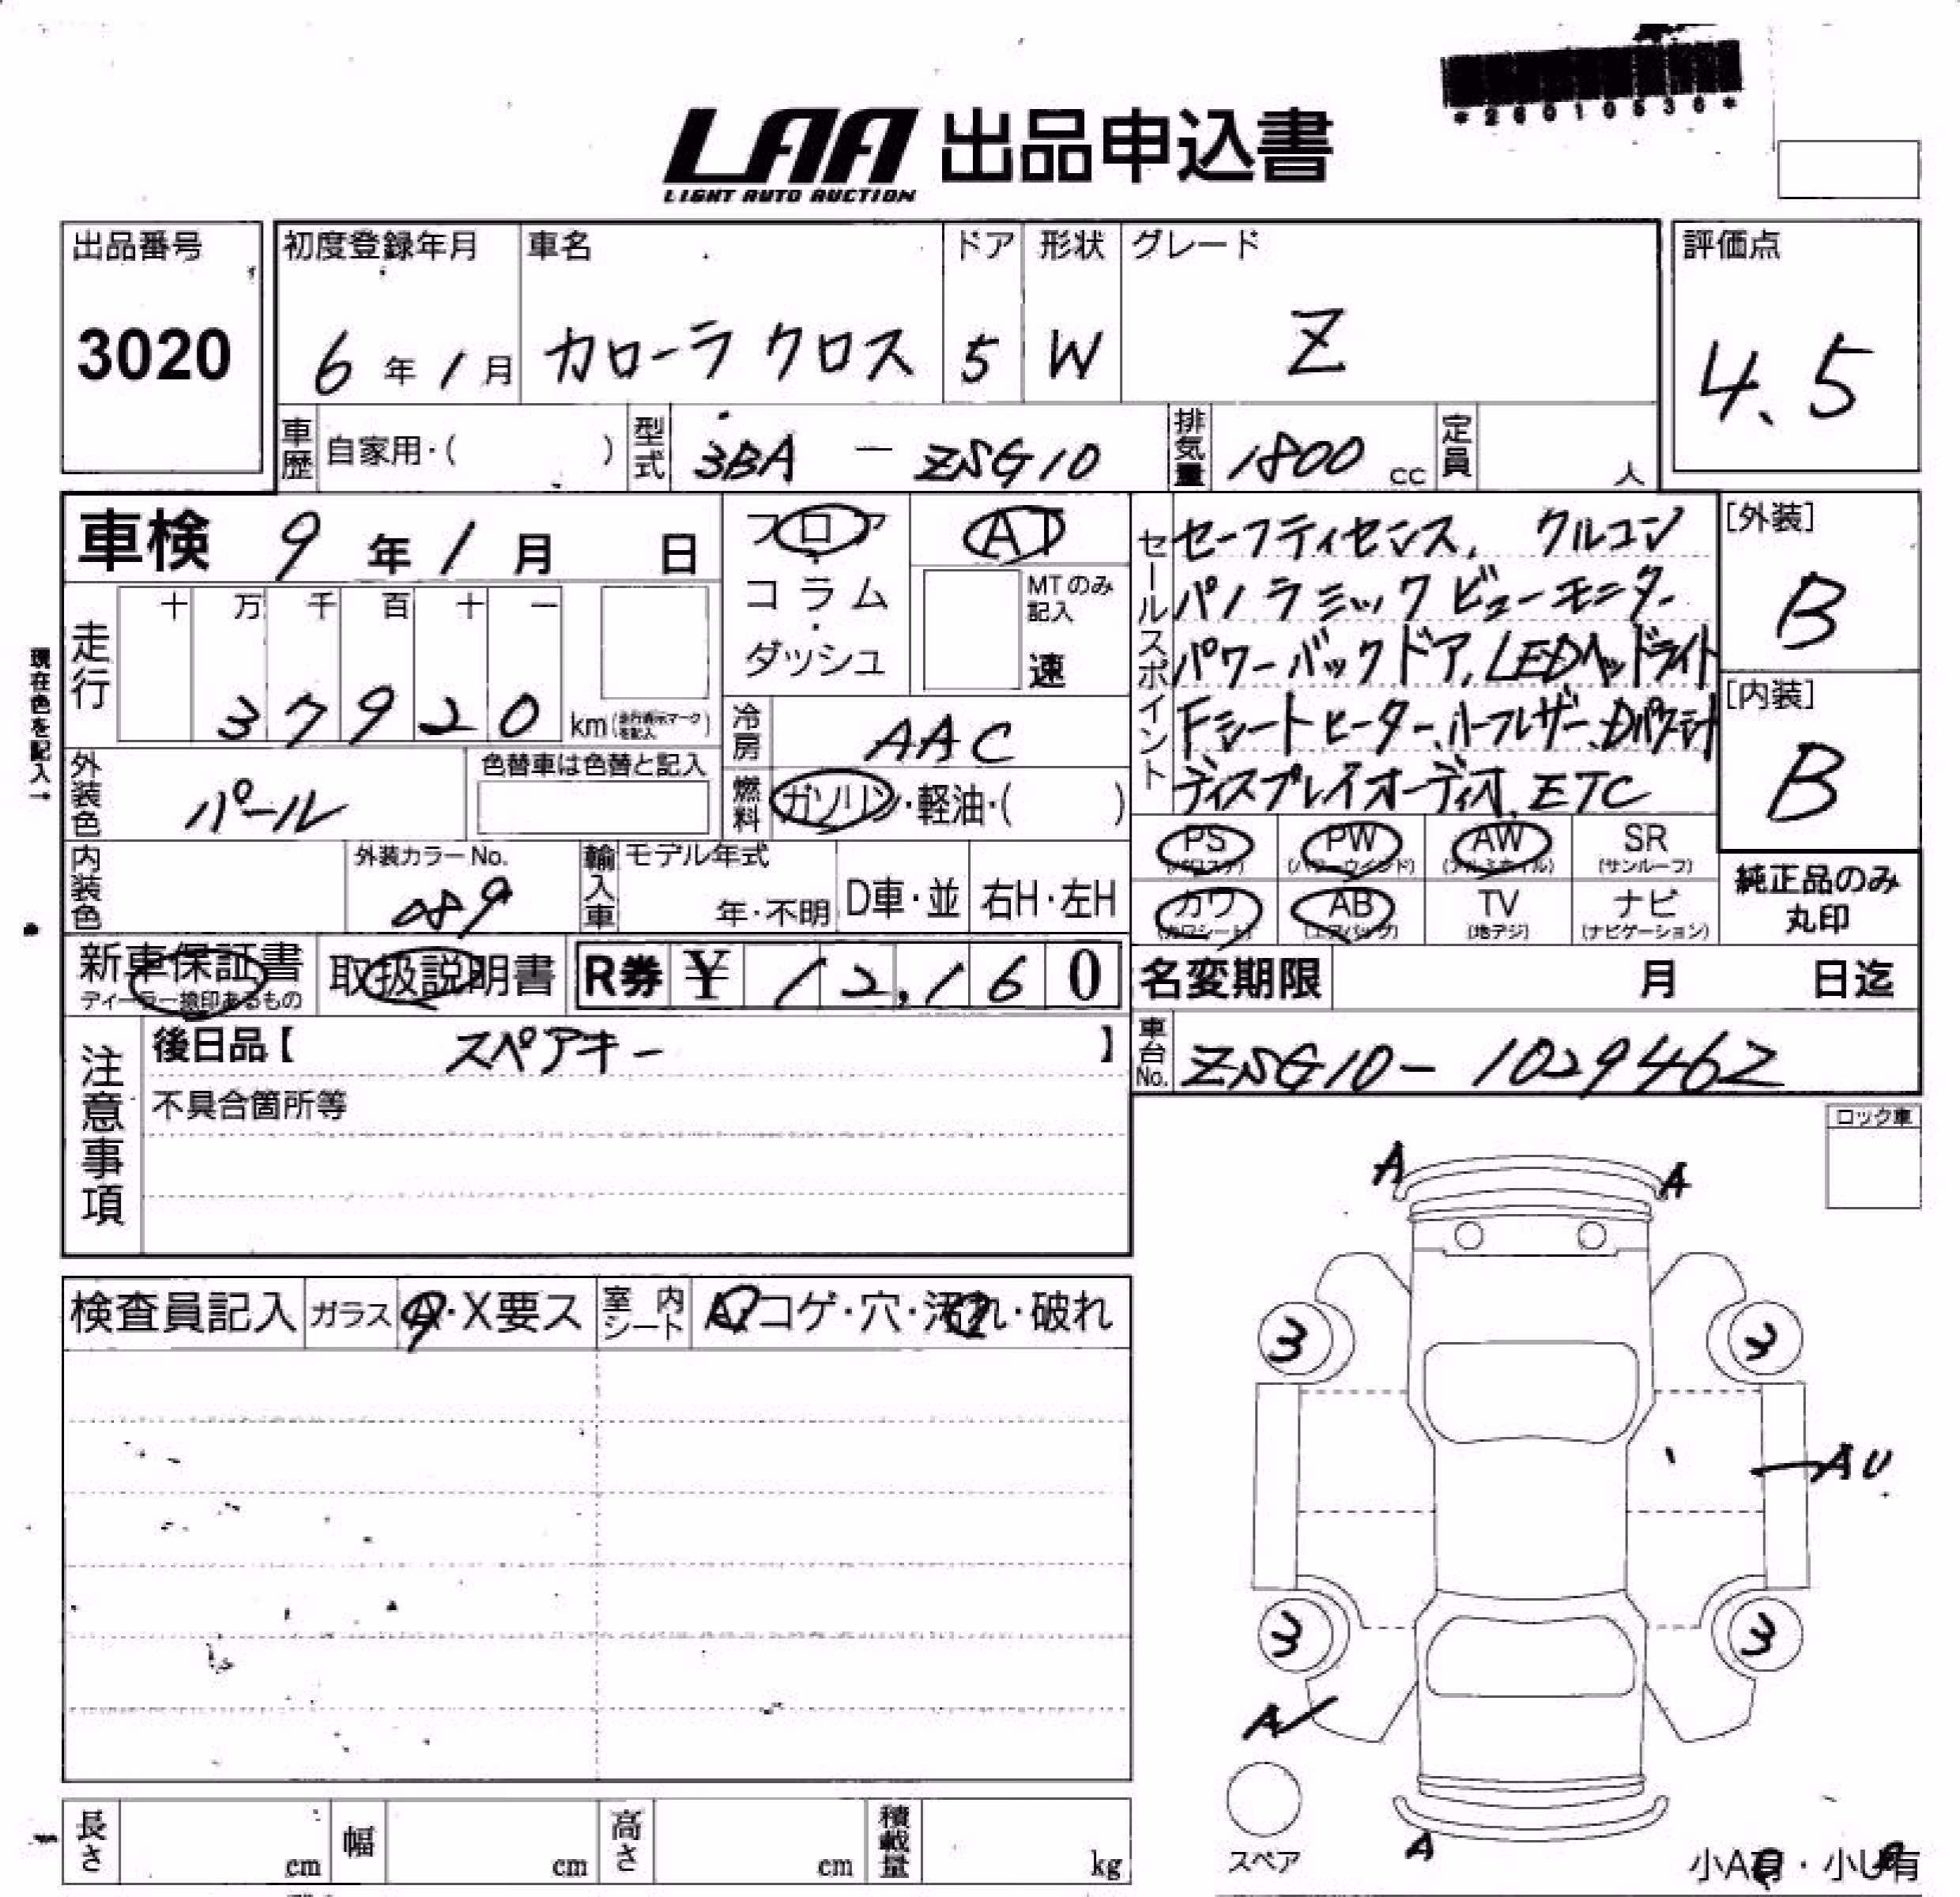 *26010536*
LAA 出品申込書
LIGHT AUTO AUCTION
出品番号 初度登録年月 車名 ドア 形状 グレード 評価点
3020 6年1月 カローラクロス 5 W Z 4.5
車歴 自家用・( ) 型式 3BA - ZSG10 排気量 1800 cc 定員 人
車検 9年1月 日 フロア AT
コラム MTのみ記入
ダッシュ 速
走行 十 万 千 百 十 一
37920 km(走行表示マークを記入)
現在色を記入→
冷房 AAC
外装色 パール 色替車は色替と記入
燃料 ガソリン・軽油・( )
セールスポイント
セーフティセンス, クルコン
パノラミックビューモニター
パワーバックドア, LEDヘッドライト
Fシートヒーター、ハーフレザー、Dパワーシート
ディスプレイオーディオ, ETC
[外装]
B
[内装]
B
内装色 外装カラーNo. 089 輸入車 モデル年式 年・不明 D車・並 右H・左H
PS (パワステ) PW (パワーウインド) AW (アルミホイル) SR (サンルーフ)
カワ (カワシート) AB (エアバック) TV (地デジ) ナビ (ナビゲーション)
純正品のみ
丸印
新車保証書 取扱説明書 R券 ¥ 12,160
ディーラー捺印あるもの
名変期限 月 日迄
注意事項
後日品【 スペアキー 】
不具合箇所等
車台No. ZSG10-1029462
ロック車
検査員記入 ガラス A・X要ス 室内シート A・コゲ・穴・汚れ・破れ
A A
3 3
AU
3 3
A
A
スペア
小A有・小U有
長さ cm 幅 cm 高さ cm 積載量 kg